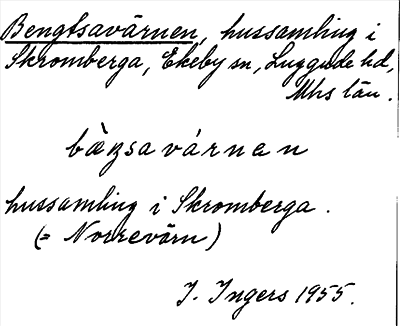 Bengtsavärnen, hussamling i
Skromberga, Ekeby sn, Luggude hd,
Mhs län.
bàŋsavárnen
hussamling i Skromberga.
(= Norrevärn)
I. Ingers 1955.